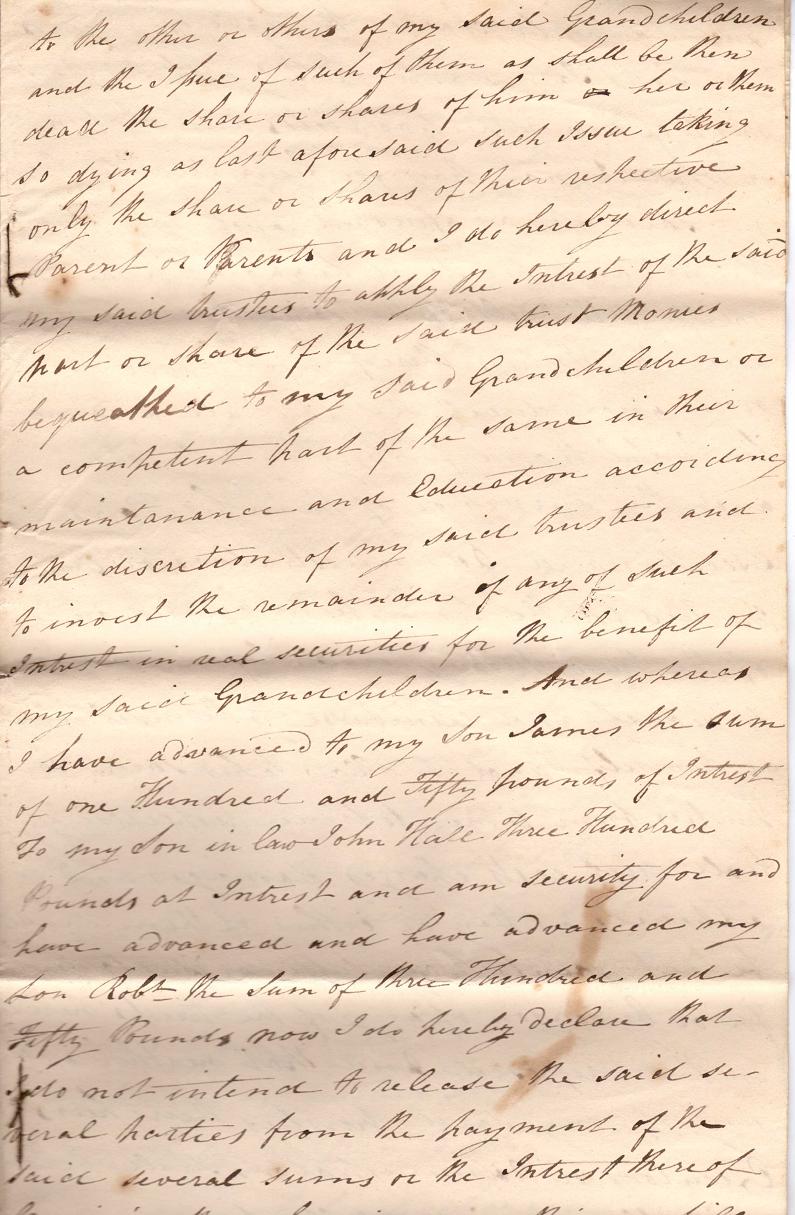 to the other or others of my said Grandchildren
and the Issue of such of them as shall be then
dead the share or shares of him or her or them
so dying as last aforesaid such Issue taking
only the share or shares of their respective
Parent or Parents and I do hereby direct
my said trustees to apply the Intrest of the said
part or share of the said trust Monies
bequeathed to my said Grandchildren or
a competent part of the same in their
maintanance and Education according
to the discretion of my said trustees and
to invest the remainder if any of such
Intrest in real securities for the benefit of
my said Grandchildren. And whereas
I have advanced to my Son James the sum
of one Hundred and Fifty pounds of Intrest
To my Son in law John Hale Three Hundred
Pounds at Intrest and am security for and
have advanced and have advanced my
Son Robt the Sum of three Hundred and
Fifty Pounds now I do hereby declare that
I do not intend to release the said se-
veral parties from the payment of the
said several sums or the Intrest thereof